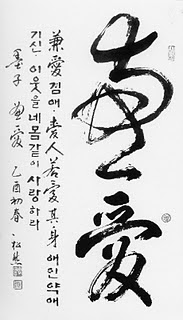 兼愛
兼愛 겸애·愛人若愛其身 애인약애
기신·이웃을 네 몸 같이 사랑하라
墨子 兼愛 乙酉初春·松